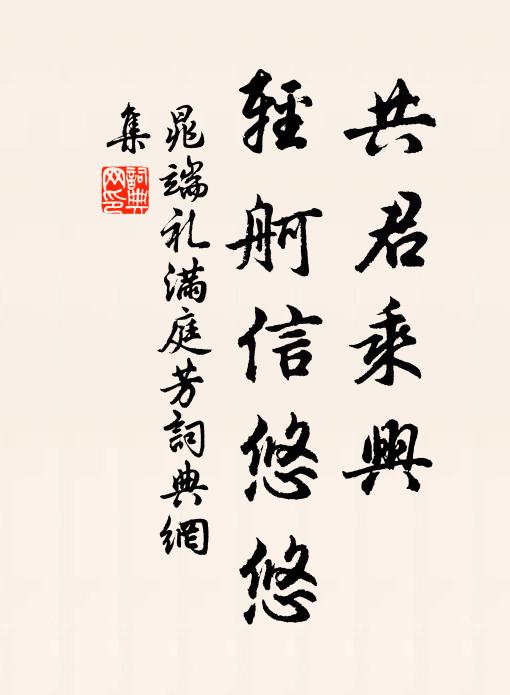 共君乘興
輕舸信悠悠
晁端礼滿庭芳詞典網
集
詞典
网印